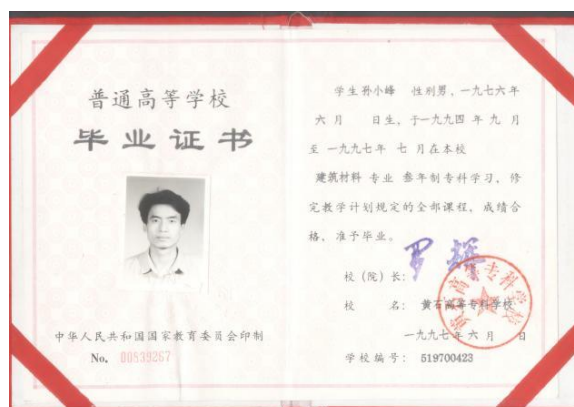 普通高等学校
毕业证书
中华人民共和国国家教育委员会印制
No. 00839267
学生孙小峰 性别男，一九七六年
六月 日生，于一九九四年九月
至一九九七年 七月在本校
建筑材料 专业 叁年制专科学习，修
完教学计划规定的全部课程，成绩合
格，准予毕业。
校（院）长：
校 名：黄石高等专科学校
一九九七年六月 日
学校编号：519700423